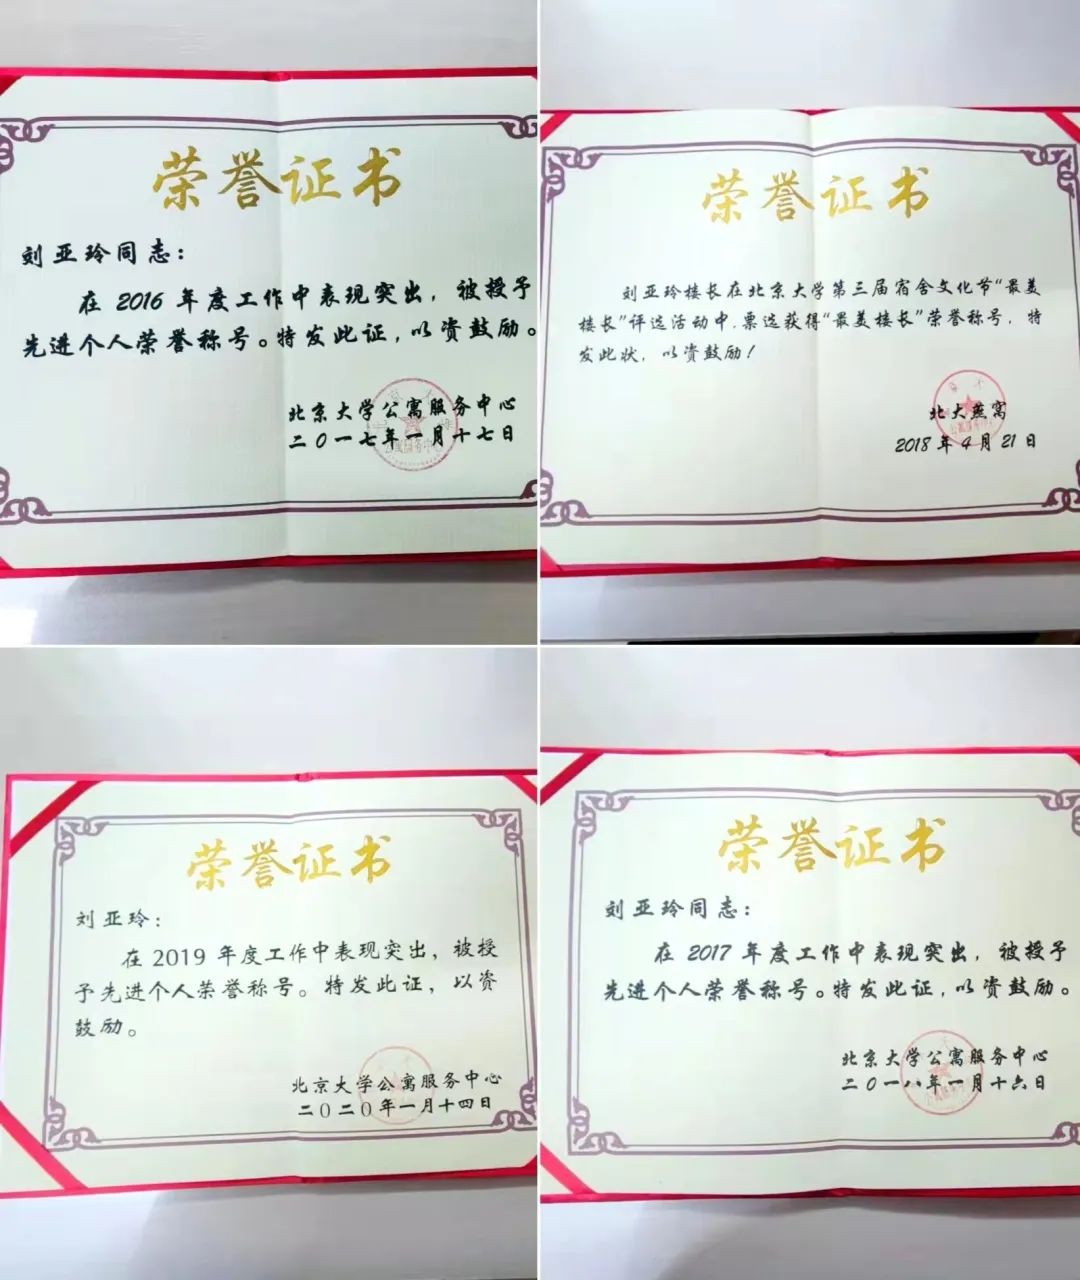 荣誉证书
刘亚玲同志：
在 2016 年度工作中表现突出，被授予
先进个人荣誉称号。特发此证，以资鼓励。
北京大学公寓服务中心
二〇一七年一月十七日
荣誉证书
刘亚玲楼长在北京大学第三届宿舍文化节“最美
楼长”评选活动中，票选获得“最美楼长”荣誉称号，特
发此状，以资鼓励！
北大燕窝
2018 年 4 月 21 日
荣誉证书
刘亚玲：
在 2019 年度工作中表现突出，被授
予先进个人荣誉称号。特发此证，以资
鼓励。
北京大学公寓服务中心
二〇二〇年一月十四日
荣誉证书
刘亚玲同志：
在 2017 年度工作中表现突出，被授予
先进个人荣誉称号。特发此证，以资鼓励。
北京大学公寓服务中心
二〇一八年一月十六日